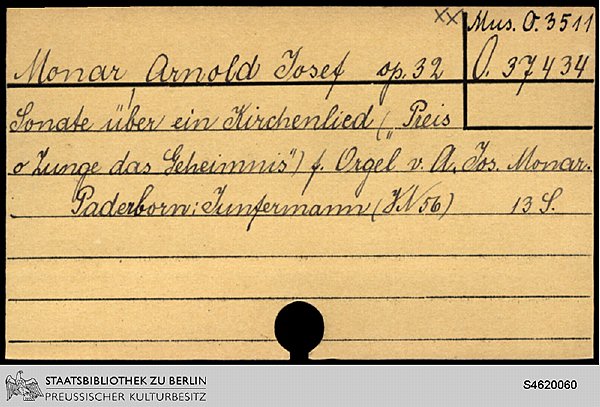 xx Mus. O. 3511
Monar, Arnold Josef op. 32 O. 37434
Sonate über ein Kirchenlied („Preis
o Zunge das Geheimnis") f. Orgel v. A. Jos. Monar.
Paderborn: Junfermann (VN 56) 13 S.
STAATSBIBLIOTHEK ZU BERLIN
PREUSSISCHER KULTURBESITZ
S4620060